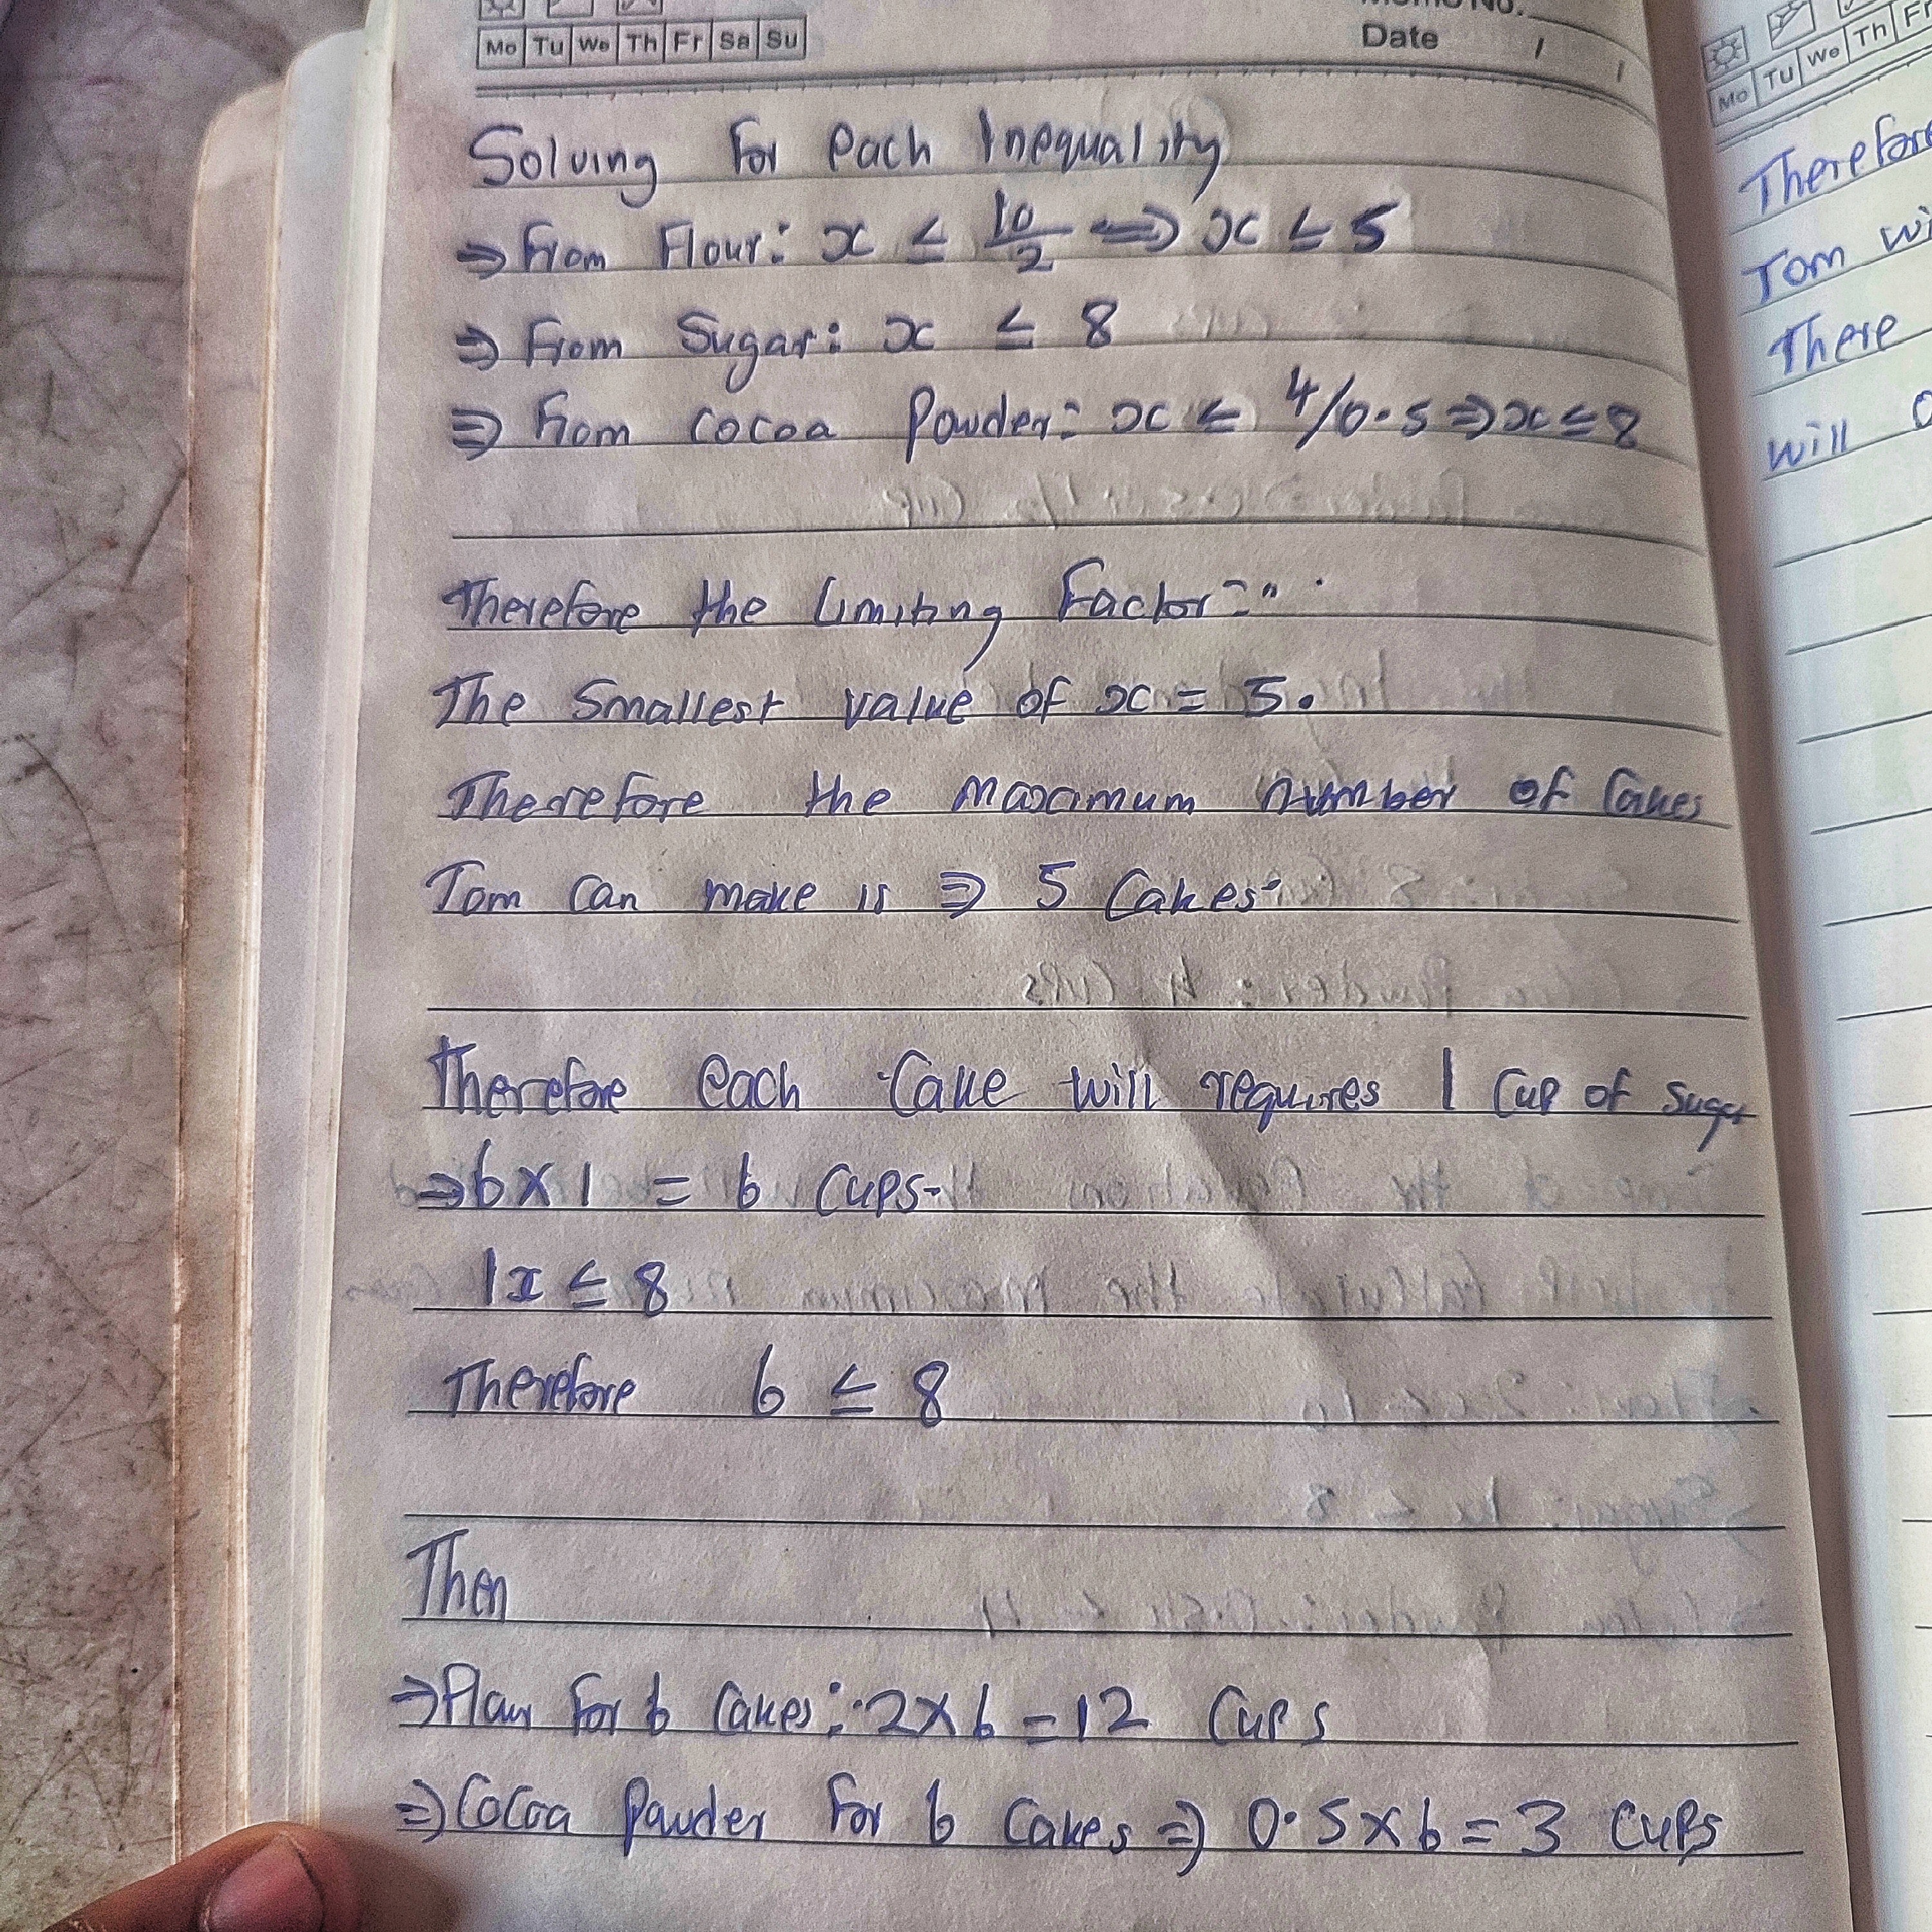 Mo Tu We Th Fr Sa Su
Memo No.
Date / /
Solving For each Inequality
⇒ From Flour: x ≤ 10/2 ⟹ x ≤ 5
⇒ From Sugar: x ≤ 8
⇒ From cocoa Powder: x ≤ 4/0.5 ⇒ x ≤ 8
Therefore the Limiting Factor
The Smallest value of x = 5.
Therefore the maximum number of Cakes
Tom Can make is ⇒ 5 Cakes
Therefore each Cake will requires 1 Cup of sugar
⇒ 6 x 1 = 6 Cups
1x ≤ 8
Therefore 6 ≤ 8
Then
⇒ Flour For 6 Cakes: 2 x 6 = 12 Cups
⇒ Cocoa Powder For 6 Cakes ⇒ 0.5 x 6 = 3 Cups
Mo Tu We Th Fr
Therefore
Tom wi
There
will